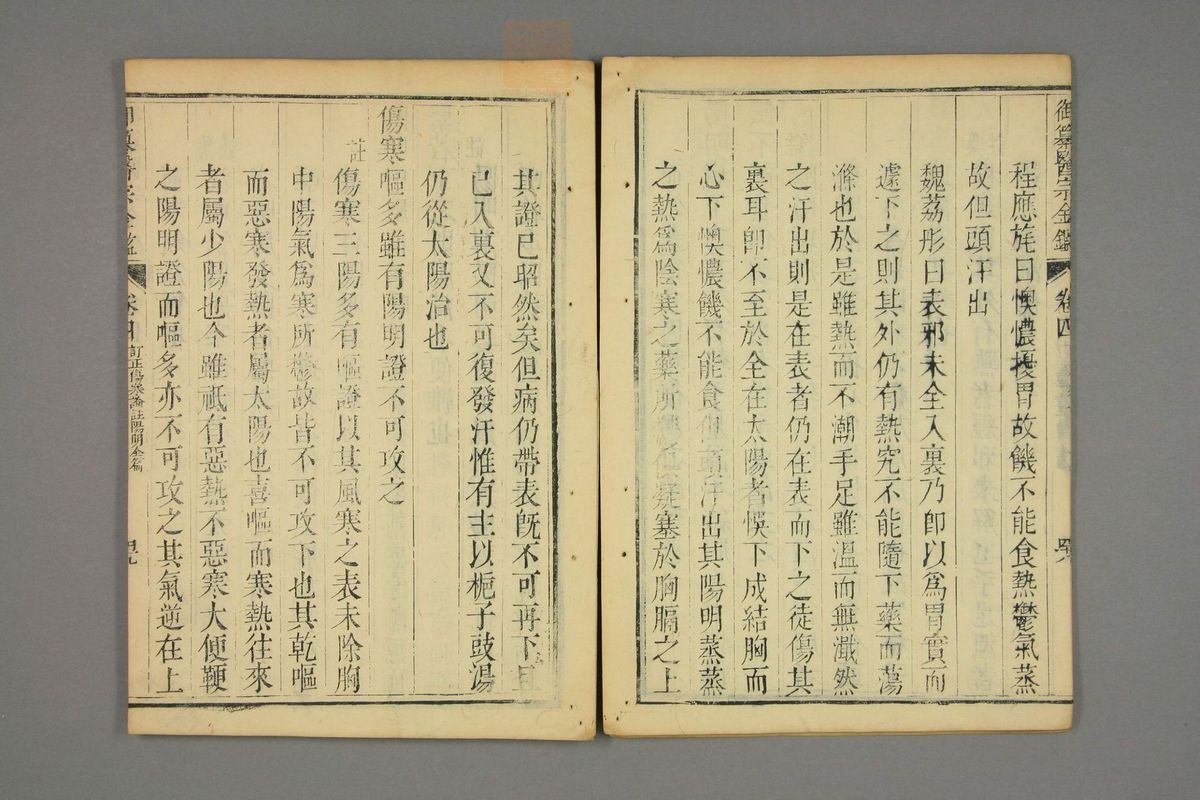 御纂醫宗金鑑 卷四
程應旄曰懊憹擾胃故饑不能食熱鬱氣蒸
故但頭汗出
魏荔彤曰表邪未全入裏乃卽以爲胃實而
遽下之則其外仍有熱究不能隨下藥而蕩
滌也於是雖熱而不潮手足雖溫而無濈然
之汗出則是在表者仍在表而下之徒傷其
裏耳卽不至於全在太陽者悞下成結胸而
心下懊憹饑不能食但頭汗出其陽明蒸蒸
之熱爲陰寒之藥所凝塞於胸膈之上
其證已昭然矣但病仍帶表旣不可再下且
已入裏又不可復發汗惟有主以梔子豉湯
仍從太陽治也
傷寒嘔多雖有陽明證不可攻之
註
傷寒三陽多有嘔證以其風寒之表未除胸
中陽氣爲寒所鬱故皆不可攻下也其乾嘔
而惡寒發熱者屬太陽也喜嘔而寒熱往來
者屬少陽也今雖祗有惡熱不惡寒大便鞕
之陽明證而嘔多亦不可攻之其氣逆在上
醫宗金鑑 卷四 訂正傷寒論註陽明全篇